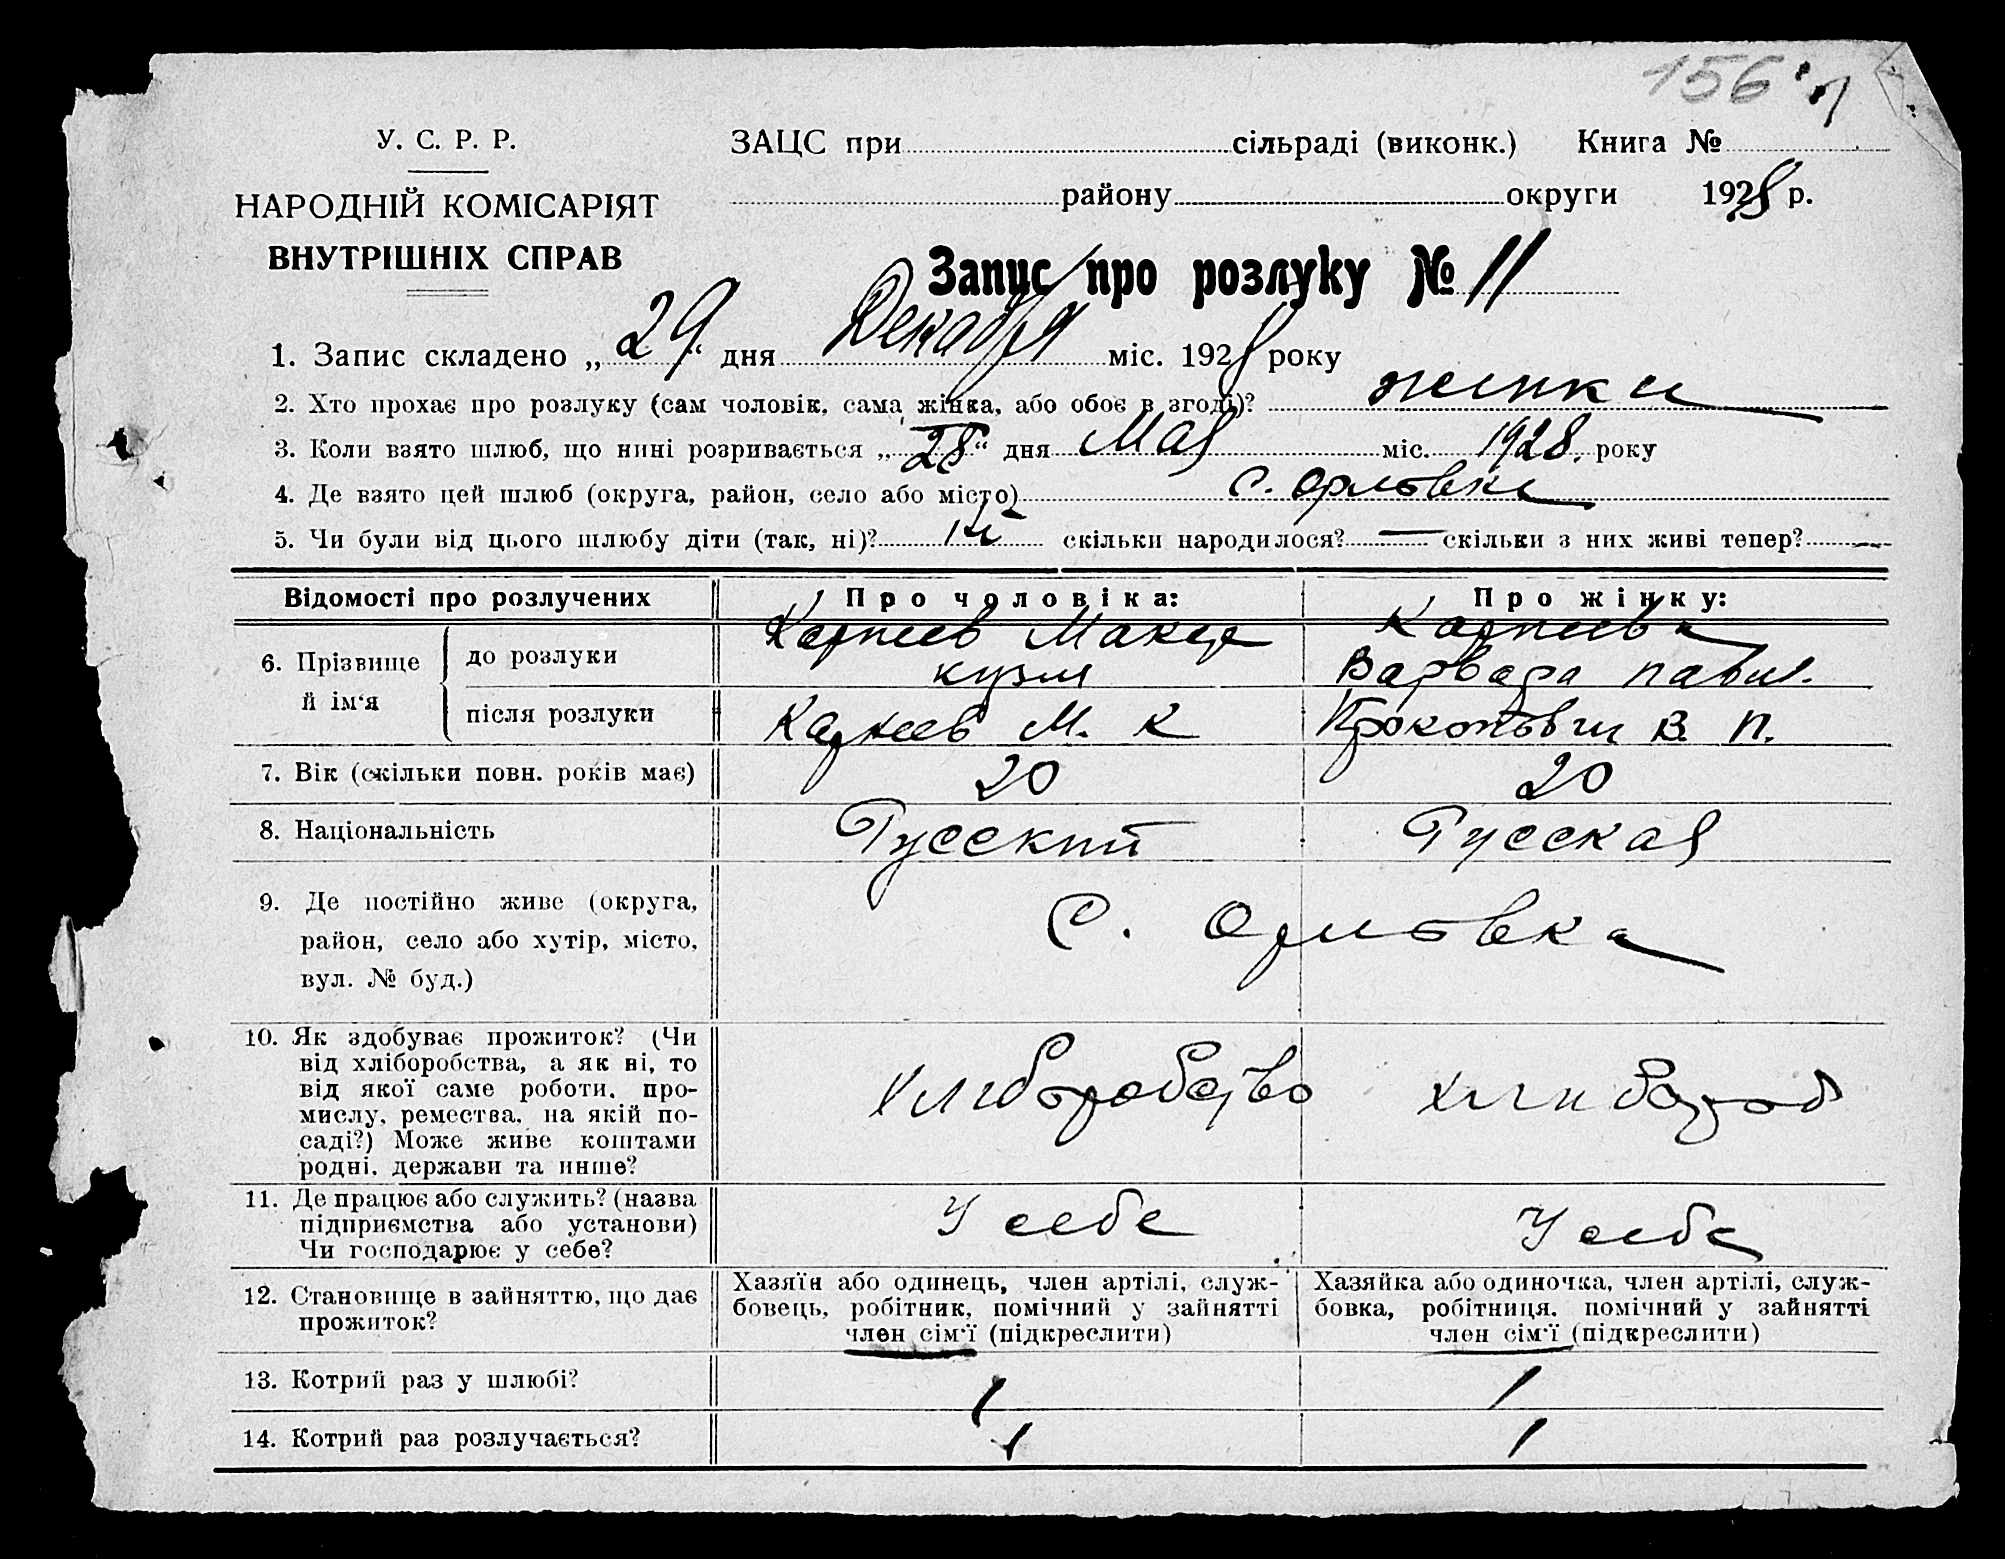 156
У. С. Р. Р.
НАРОДНІЙ КОМІСАРІЯТ
ВНУТРІШНІХ СПРАВ
ЗАЦС при сільраді (виконк.) Книга №
району округи 1928 р.
Запис про розлуку № 11
1. Запис складено „29“ дня Декабря міс. 1928 року
2. Хто прохає про розлуку (сам чоловік, сама жінка, або обоє в згоді)? жинки
3. Коли взято шлюб, що нині розривається „28“ дня Мая міс. 1928. року
4. Де взято цей шлюб (округа, район, село або місто) с. Орловка
5. Чи були від цього шлюбу діти (так, ні)? ні скільки народилося? — скільки з них живі тепер? —
Відомості про розлучених Про чоловіка: Про жінку:
6. Прізвище й ім‘я
до розлуки Карпеев Кузм Карпеева Варвара Павл.
після розлуки Карпеев М. К Прокопович В. П.
7. Вік (скільки повн. років має) 20 20
8. Національність Русский Русская
9. Де постійно живе (округа,
район, село або хутір, місто,
вул. № буд.)
С. Орловка
10. Як здобуває прожиток? (Чи
від хліборобства, а як ні, то
від якої саме роботи, про-
мислу, ремества, на якій по-
саді?) Може живе коштами
родні, держави та инше?
хлиборобство хлибороб
11. Де працює або служить? (назва
підприємства або установи)
Чи господарює у себе?
У себе У себе
12. Становище в зайняттю, що дає
прожиток?
Хазяїн або одинець, член артілі, служ-
бовець, робітник, помічний у зайнятті
член сім‘ї (підкреслити)
Хазяйка або одиночка, член артілі, служ-
бовка, робітниця, помічний у зайнятті
член сім‘ї (підкреслити)
13. Котрий раз у шлюбі? 1 1
14. Котрий раз розлучається? 1 1